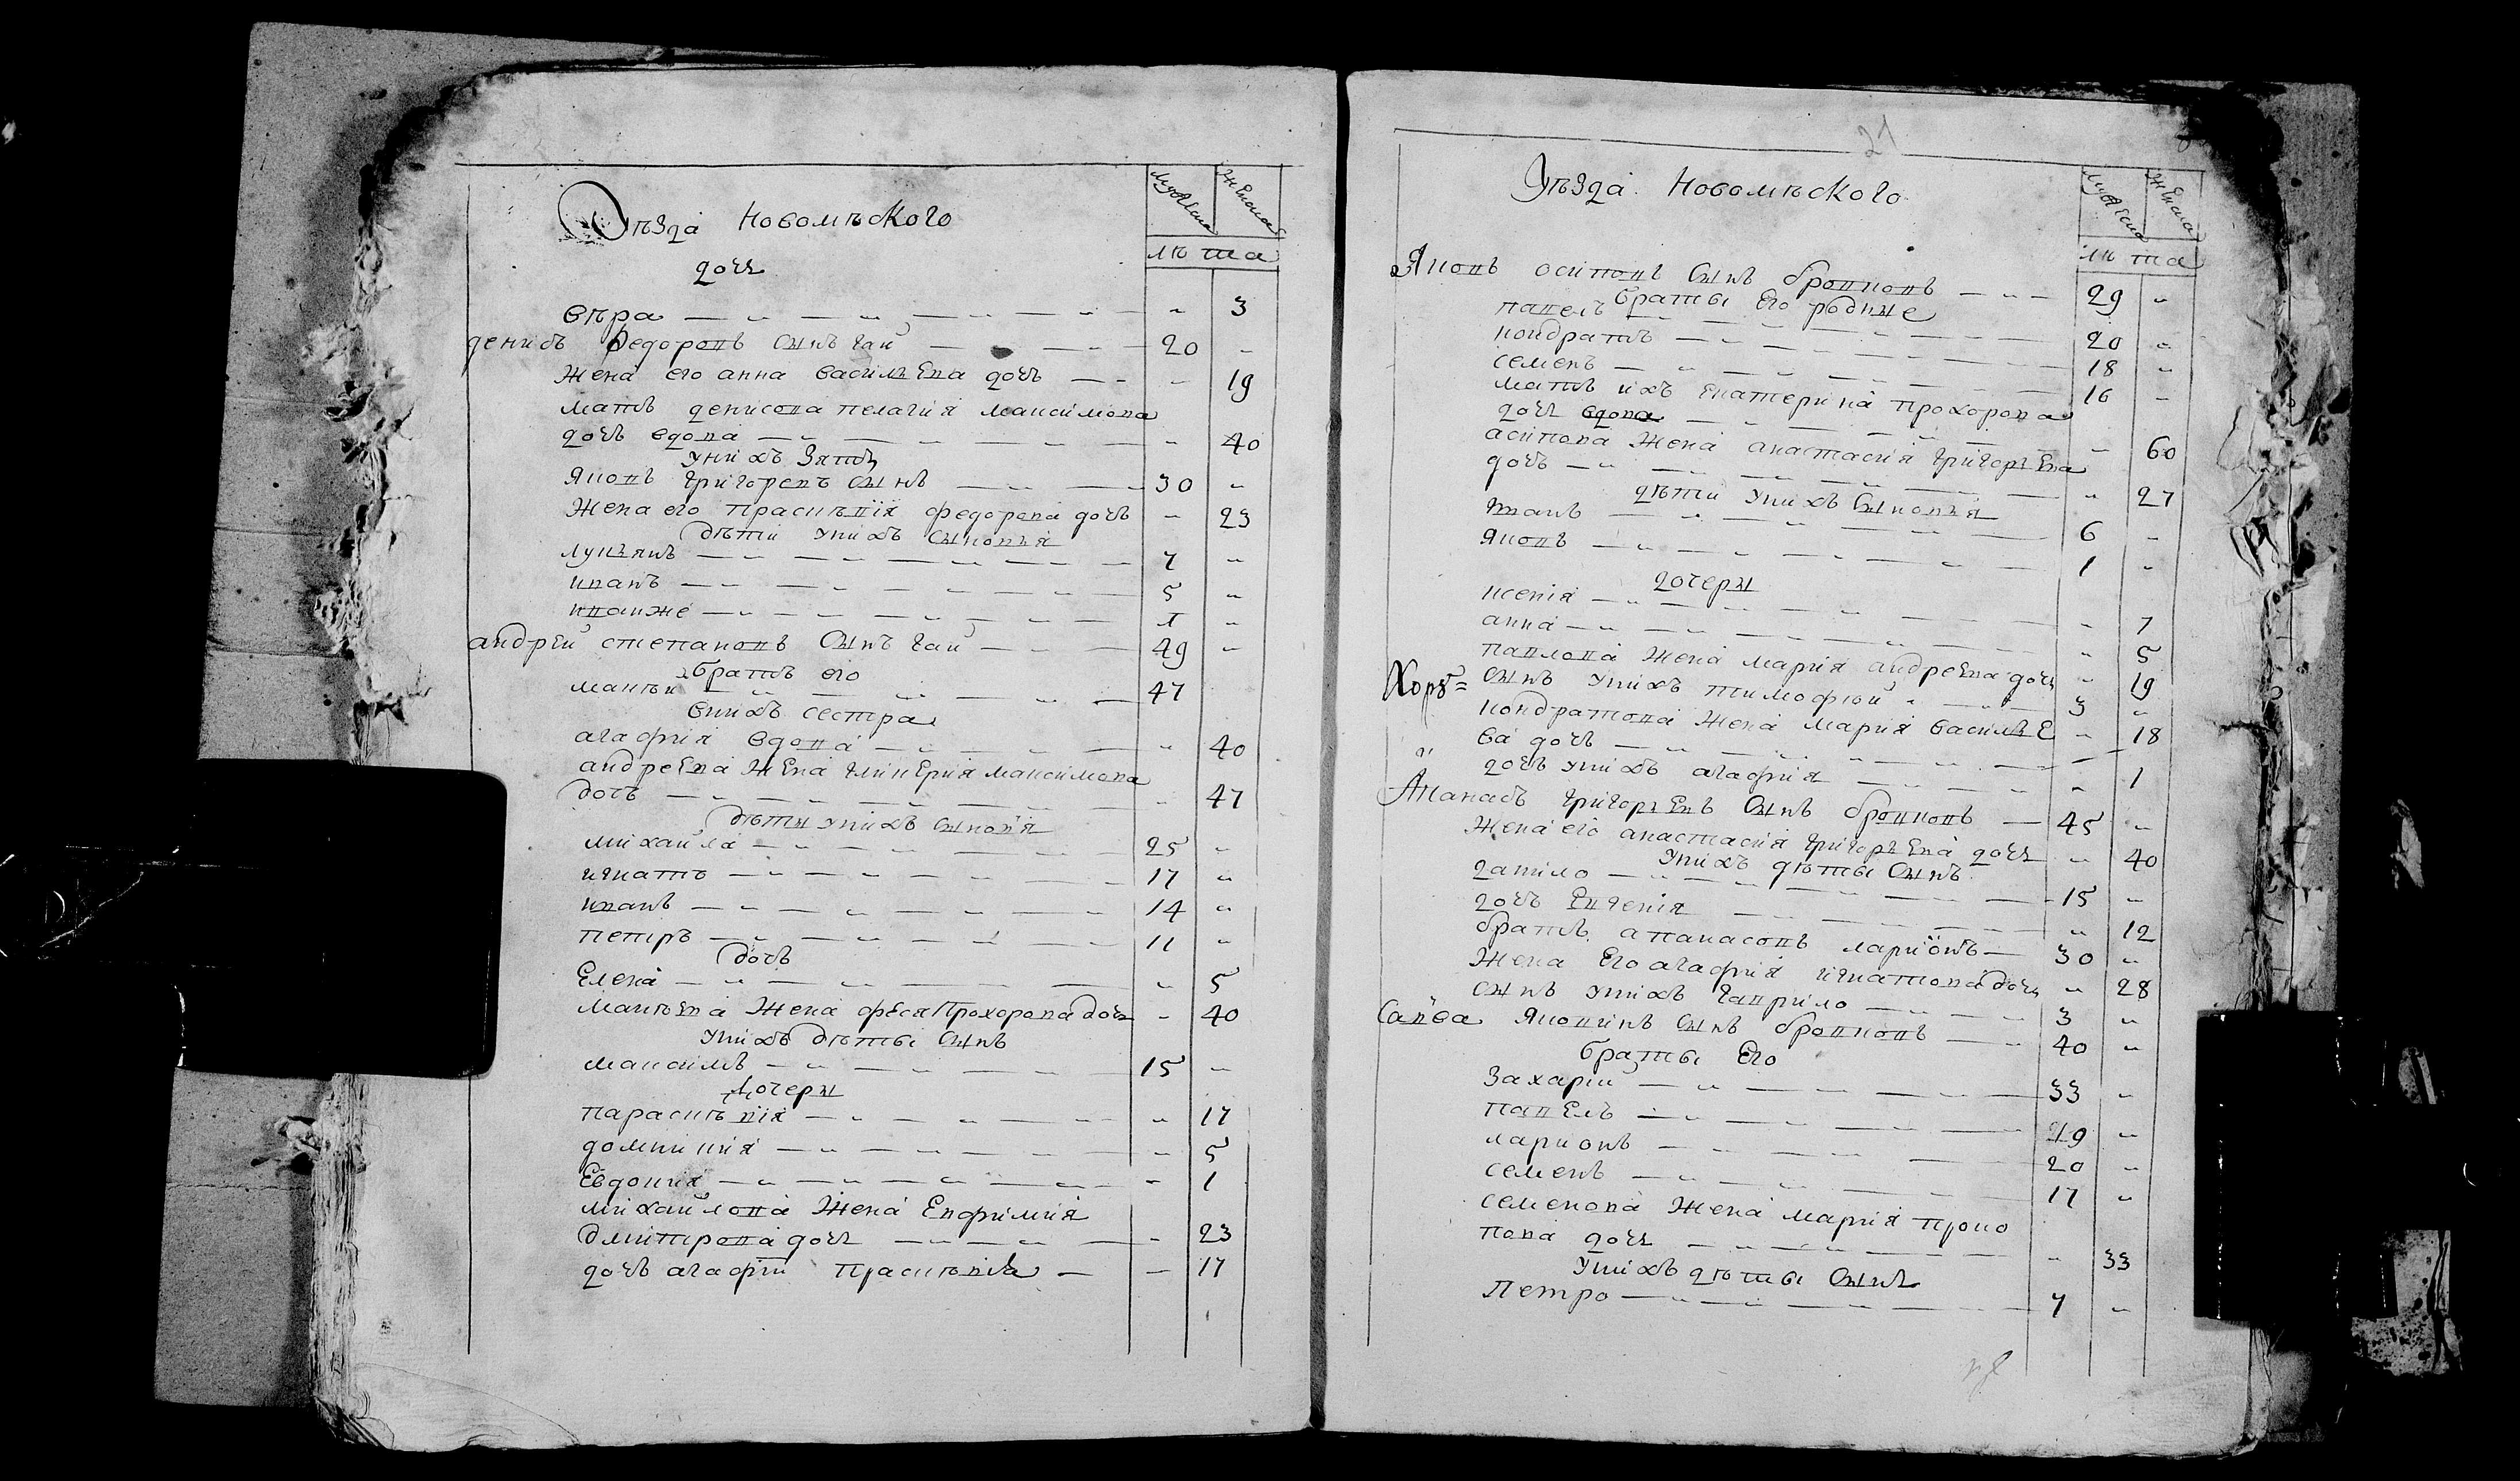 Уѣзда Новомѣского
мужеска женска
лѣта
дочь
вѣра 3
денисъ Федоровъ сынъ гай 20
жена его анна василъева дочъ 19
матъ денисова пелагия максимова
дочъ вдова 40
унихъ зять
яковъ григоревъ сынъ 30
жена его прасковѣя федорова дочъ 23
дѣти унихъ сыновъя
лукъянъ 7
иванъ 5
иванже 1
андрѣй степановъ сынъ гай 49
братъ его
манѣй 47
внихъ сестра
агафия вдова 40
андреева жена гликерия максимова
дочъ 47
дѣты унихъ сыновя
михайла 25
игнатъ 17
иванъ 14
петръ 11
дочъ
Елена 5
жена феся Прохорова дочъ 40
унихъ дѣты сынъ
максимъ 15
дочеры
параскѣвия 17
домникия 5
Евдокия 1
михайлова жена Евфимия
дмитрова дочъ 23
дочъ агафии праскѣвия 17
21
Уѣзда Новомѣского
мужеска женска
лѣта
Яковъ осиповъ сынъ бровковъ 29
браты его родные
павелъ 20
кондратъ 18
семенъ 16
матъ ихъ екатерина прохорова
дочъ вдова 60
асипова жена анастасия григоръева
дочъ 27
дѣти унихъ сыновъя
иванъ 6
яковъ 1
дочеры
ксения 7
анна 5
павлова жена мария андреева дочъ 19
сынъ унихъ тимофей 3
кондратова жена мария василъе
ва дочъ 18
дочъ унихъ агафия 1
Апанасъ григоръевъ сынъ бровковъ 45
жена его анастасия григоръева дочъ 40
унихъ дѣты сынъ
данило 15
дочъ Евгения 12
братъ апанасовъ ларионъ 30
жена его агафия игнатова дочъ 28
сынъ унихъ гаврило 3
Савва яковинъ сынъ бровковъ 40
браты его
захарий 33
павелъ 29
ларионъ 20
семенъ 17
семенова жена мария проко
пова дочъ 33
унихъ дѣты сынъ
петро 7